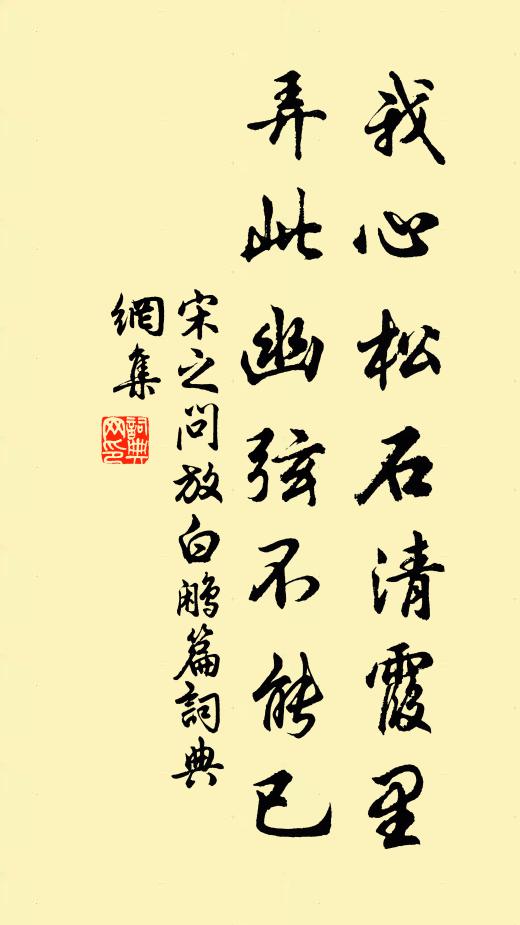 我心松石清霞里
弄此幽弦不能已
宋之问放白鹇篇詞典
網集
詞典
网印